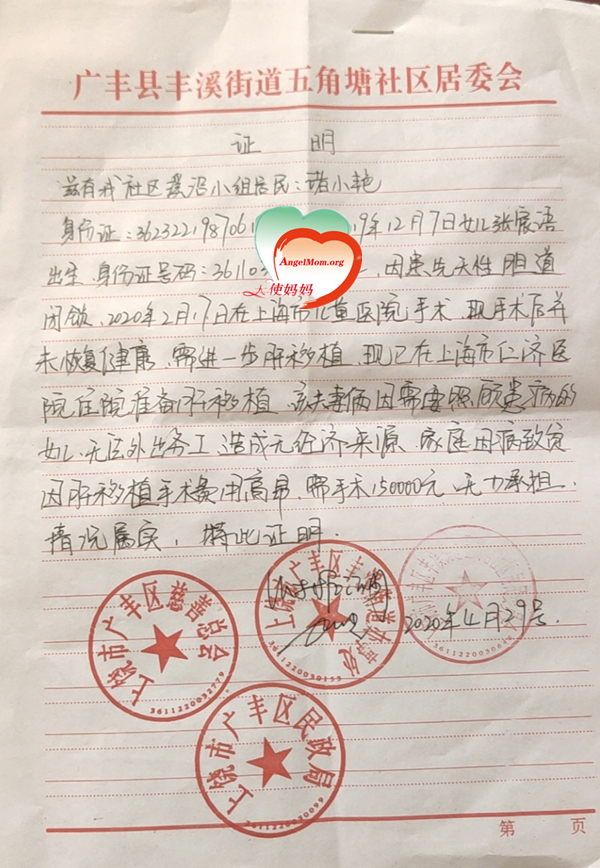 广丰县丰溪街道五角塘社区居委会
证 明
兹有我社区 小组居民:诸小艳
身份证:3623221987061 19年12月7日女儿张宸语
出生 身份证号码:361103 , 因患先天性胆道
闭锁, 2020年2月17日在上海市儿童医院手术, 现手术后并
未恢复健康, 需进一步肝移植, 现已在上海市仁济医
院住院准备肝移植, 该夫妻俩因需要照顾患病的
女儿无法外出务工, 造成无经济来源, 家庭因病致贫
因肝移植手术费用高昂, 需手术150000元, 无力承担.
情况属实, 特此证明.
AngelMom.org
天使妈妈
2020年4月29号.
上饶市广丰区慈善总会
3611220032779
上饶市广丰区丰溪街道办事处
3611220030155
上饶市广丰区民政局
3611220030099
第 页